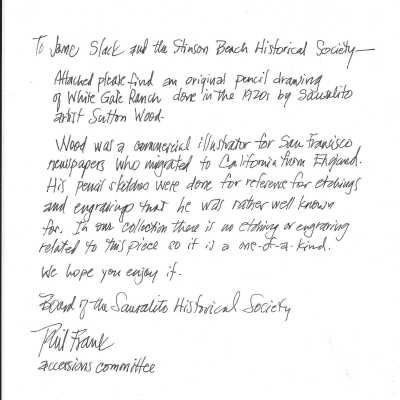 To Jane Slack and the Stinson Beach Historical Society—
Attached please find an original pencil drawing
of White Gate Ranch done in the 1920s by Sausalito
artist Sutton Wood.
Wood was a commercial illustrator for San Francisco
newspapers who migrated to California from England.
His pencil sketches were done for reference for etchings
and engravings that he was rather well known
for. In our collection there is no etching or engraving
related to this piece so it is a one-of-a-kind.
We hope you enjoy it.
Board of the Sausalito Historical Society
Phil Frank
accessions committee